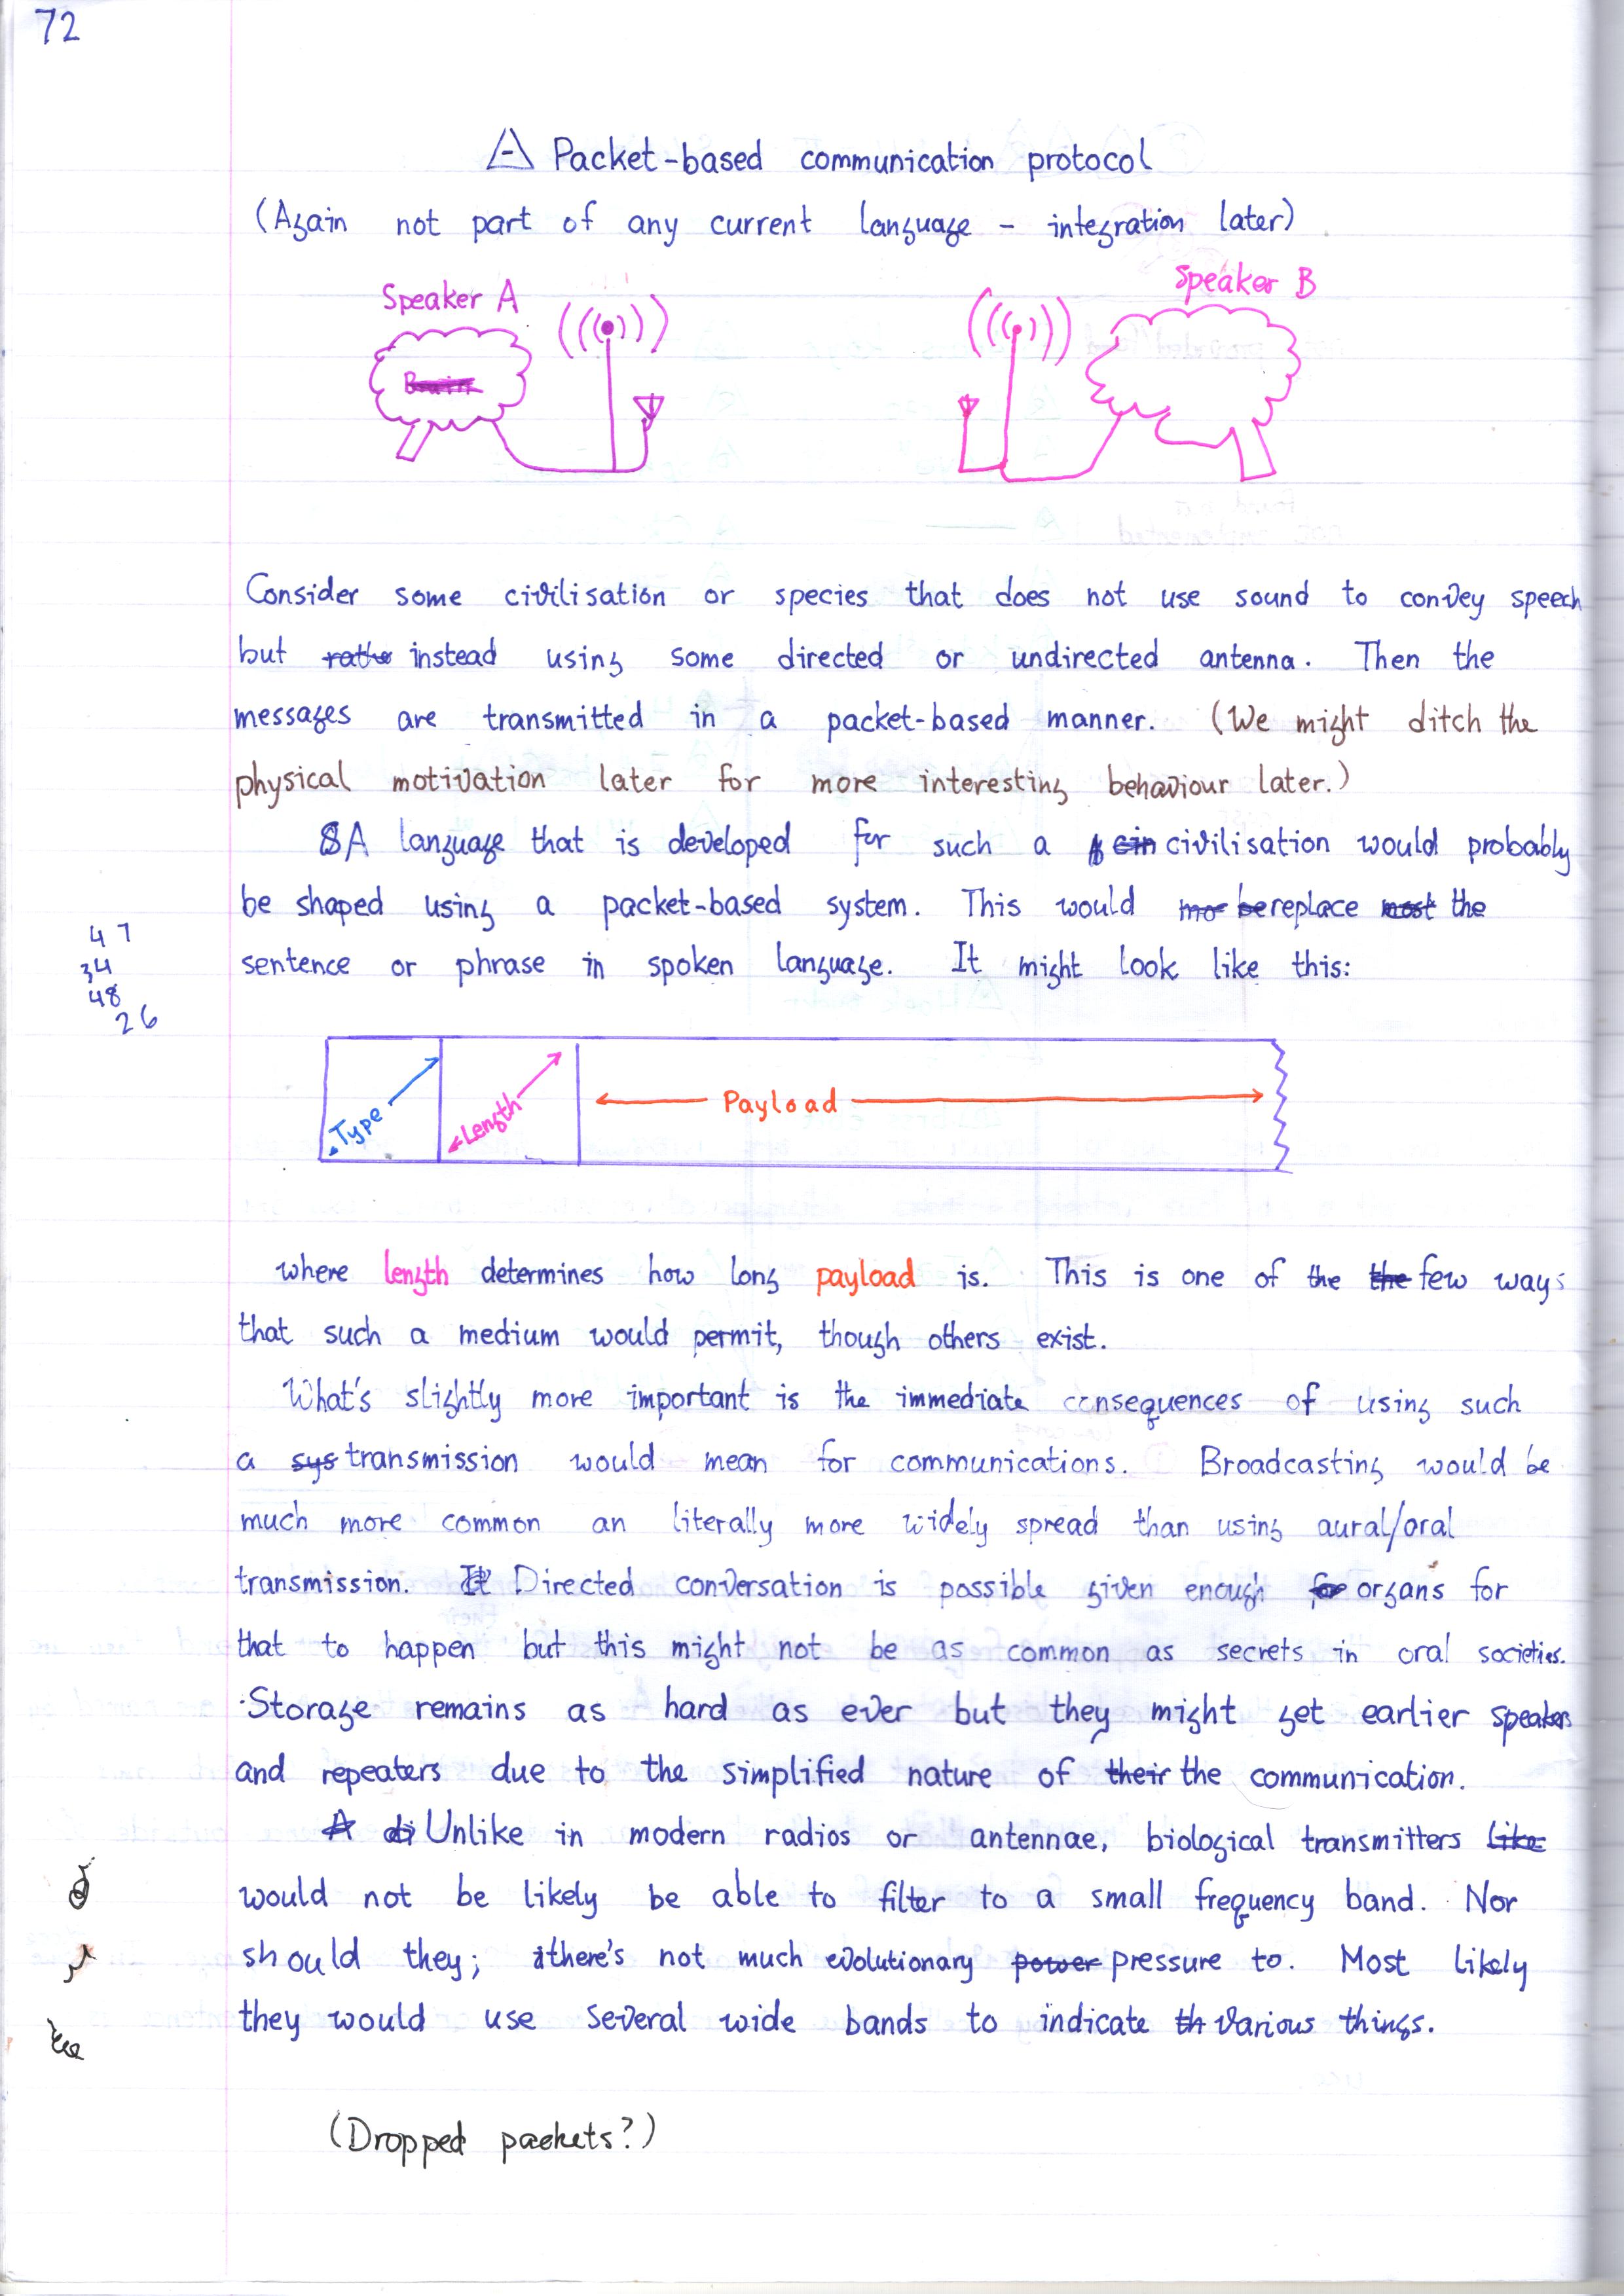 72
A Packet-based communication protocol
(Again not part of any current language - integration later)
Speaker A
Speaker B
Consider some civilisation or species that does not use sound to convey speech
but instead using some directed or undirected antenna. Then the
messages are transmitted in a packet-based manner. (We might ditch the
physical motivation later for more interesting behaviour later.)
A language that is developed for such a civilisation would probably
be shaped using a packet-based system. This would replace the
sentence or phrase in spoken language. It might look like this:
47
34
48
26
Type
Length
Payload
where length determines how long payload is. This is one of the few ways
that such a medium would permit, though others exist.
What's slightly more important is the immediate consequences of using such
a transmission would mean for communications. Broadcasting would be
much more common an literally more widely spread than using aural/oral
transmission. Directed conversation is possible given enough organs for
that to happen but this might not be as common as secrets in oral societies.
Storage remains as hard as ever but they might get earlier speakers
and repeaters due to the simplified nature of the communication.
Unlike in modern radios or antennae, biological transmitters
would not be likely be able to filter to a small frequency band. Nor
should they; there's not much evolutionary pressure to. Most likely
they would use several wide bands to indicate various things.
(Dropped packets?)